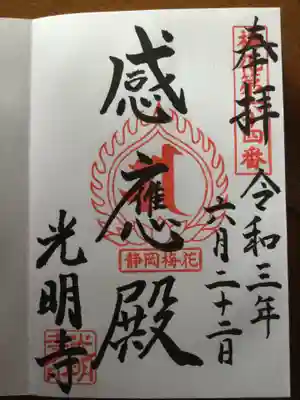 奉拝
令和三年
六月二十二日
感應殿
静岡梅花
光明寺